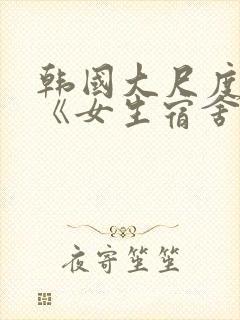 韩國大尺度
《女生宿舍
夜寄笙笙